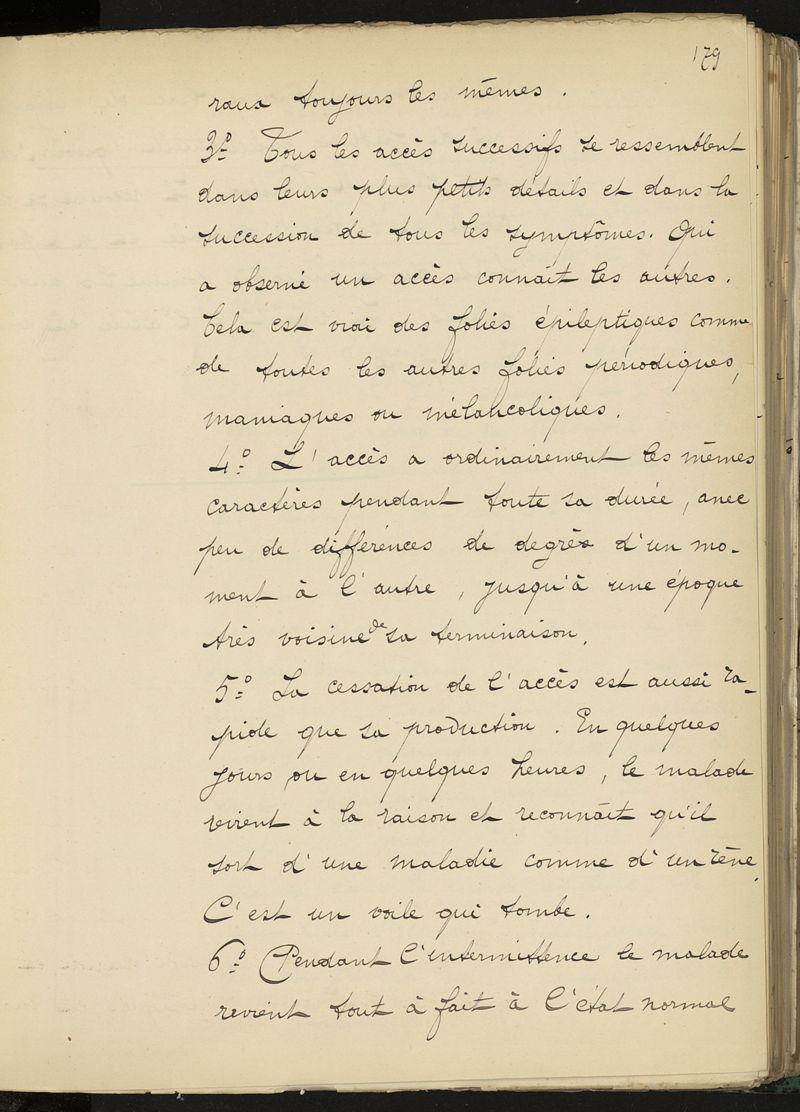 179
raux toujours les mêmes.
3º Tous les accès successifs se ressemblent
dans leurs plus petits détails et dans la
succession de tous les symptômes. Qui
a observé un accès connait les autres.
Cela est vrai des folies épileptiques comme
de toutes les autres folies périodiques,
maniaques ou mélancoliques.
4º L'accès a ordinairement les mêmes
caractères pendant toute sa durée, avec
peu de différences de degrès d'un mo-
ment à l'autre, jusqu'à une époque
très voisine de sa terminaison.
5º La cessation de l'accès est aussi ra-
pide que sa production. En quelques
jours, ou en quelques heures, le malade
revient à la raison et reconnaît qu'il
sort d'une maladie comme d'un rêve.
C'est un voile qui tombe.
6º Pendant l'intermittence le malade
revient tout à fait à l'état normal